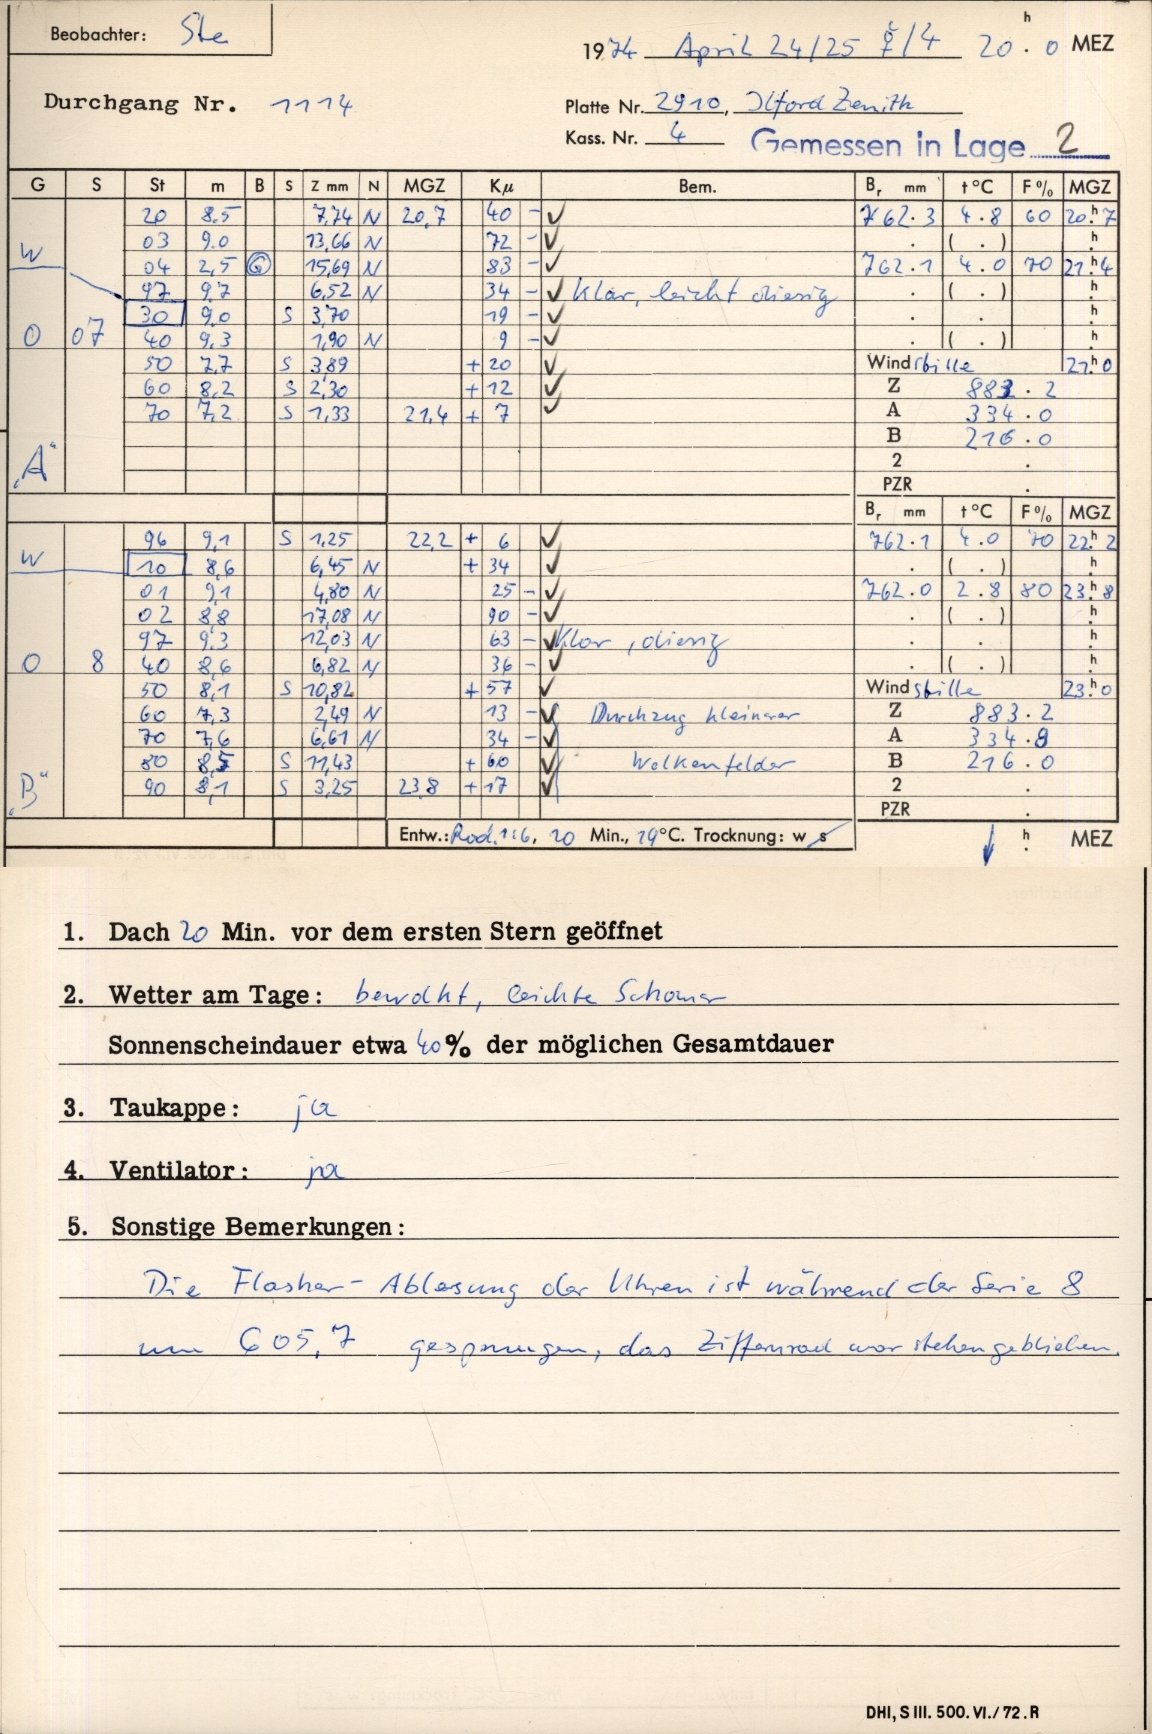 Beobachter: Ste
1974 April 24/25 ☿/4 20h.0 MEZ
Durchgang Nr. 1114
Platte Nr. 2910, Ilford Zenith
Kass. Nr. 4 Gemessen in Lage 2
G S St m B S Z mm N MGZ Kµ Bem. Br mm t °C F % MGZ
20 8.5 7,74 N 20,7 40 - ✓ 762.3 4.8 60 20h7
03 9.0 13,66 N 72 - ✓ . ( . ) h.
W 04 2,5 G 15,69 N 83 - ✓ 762.1 4.0 70 21h4
97 9,7 6,52 N 34 - ✓ Klar, leicht diesig . ( . ) h.
30 9.0 S 3,70 19 - ✓ . . h.
O 07 40 9,3 1,90 N 9 - ✓ . ( . ) h.
50 7,7 S 3,89 + 20 ✓ Windstille 21h0
60 8,2 S 2,30 + 12 ✓ Z 883.2
70 7,2 S 1,33 21,4 + 7 ✓ A 334.0
B 216.0
„A“ 2 .
PZR .
Br mm t °C F % MGZ
96 9,1 S 1,25 22,2 + 6 ✓ 762.1 4.0 70 22h2
W 10 8,6 6,45 N + 34 ✓ . ( . ) h.
01 9,1 4,80 N 25 - ✓ 762.0 2.8 80 23h8
02 8,8 17,08 N 90 - ✓ . ( . ) h.
97 9,3 12,03 N 63 - ✓ Klar, diesig . . h.
O 8 40 8,6 6,82 N 36 - ✓ . ( . ) h.
50 8,1 S 10,82 + 57 ✓ Windstille 23h0
60 7,3 2,49 N 13 - ✓ Durchzug kleinerer Z 883.2
70 7,6 6,61 N 34 - ✓ A 334.8
80 8,5 S 11,43 + 60 ✓ Wolkenfelder B 216.0
„B“ 90 8,1 S 3,25 23,8 + 17 ✓ 2 .
PZR .
Entw.: Rod. 1:6, 20 Min., 19°C. Trocknung: w s h. MEZ
1. Dach 20 Min. vor dem ersten Stern geöffnet
2. Wetter am Tage: bewölkt, leichte Schauer
Sonnenscheindauer etwa 40% der möglichen Gesamtdauer
3. Taukappe: ja
4. Ventilator: ja
5. Sonstige Bemerkungen:
Die Flasher-Ablesung der Uhren ist während der Serie 8
um 605,7 gesprungen, das Ziffernrad war stehengeblieben.
DHI, S III. 500. VI./72. R